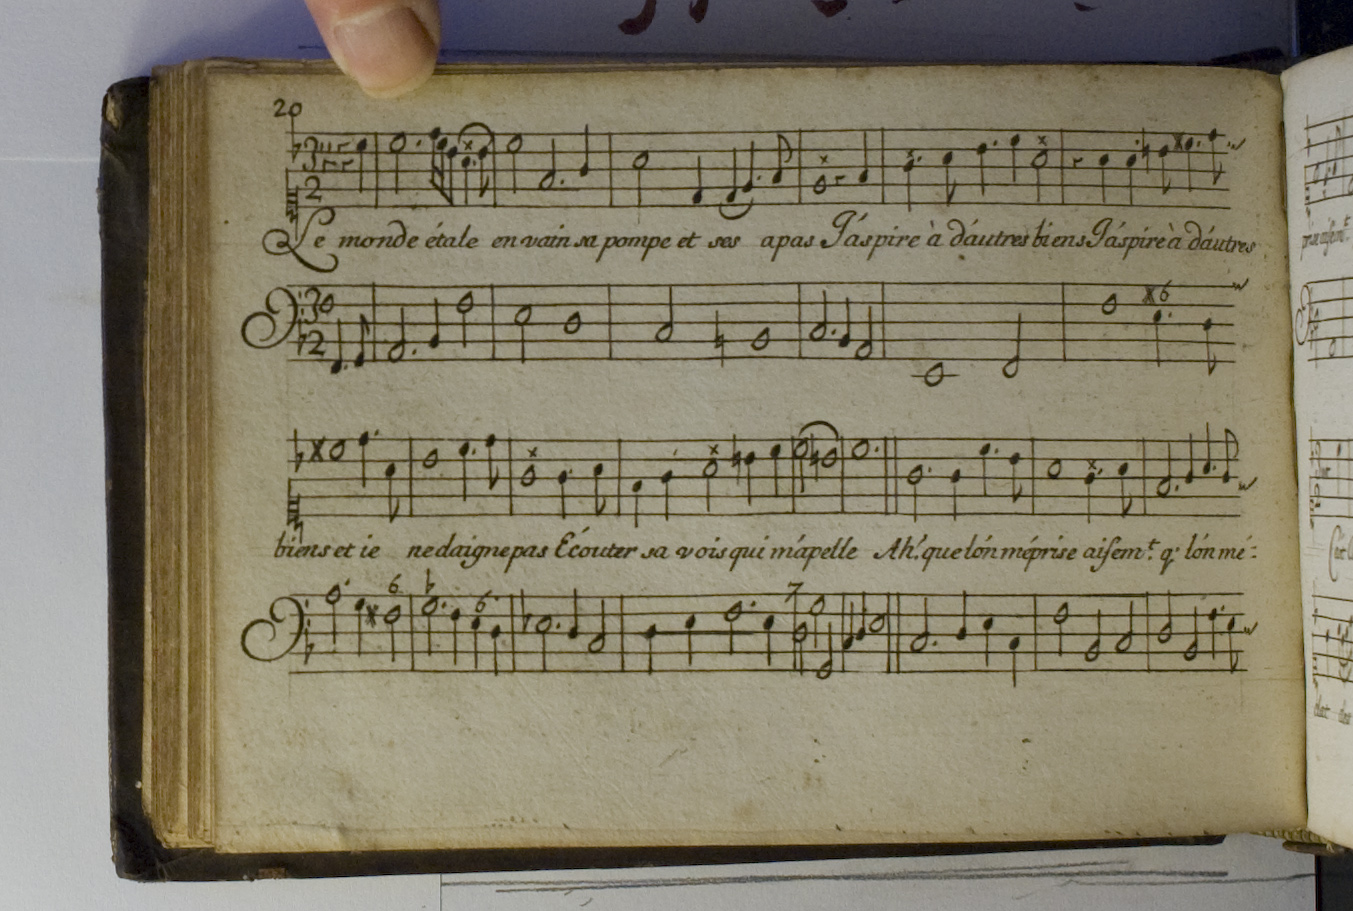 20
3
2
Le monde étale en vain sa pompe et ses apas J'áspire à d'áutres biens J'áspire à d'áutres
3
2
x6
biens et ie ne daigne pas Ecouter sa vois qui m'apelle Ah! que lón méprise aisem.t q' lón mé-
6 6 7